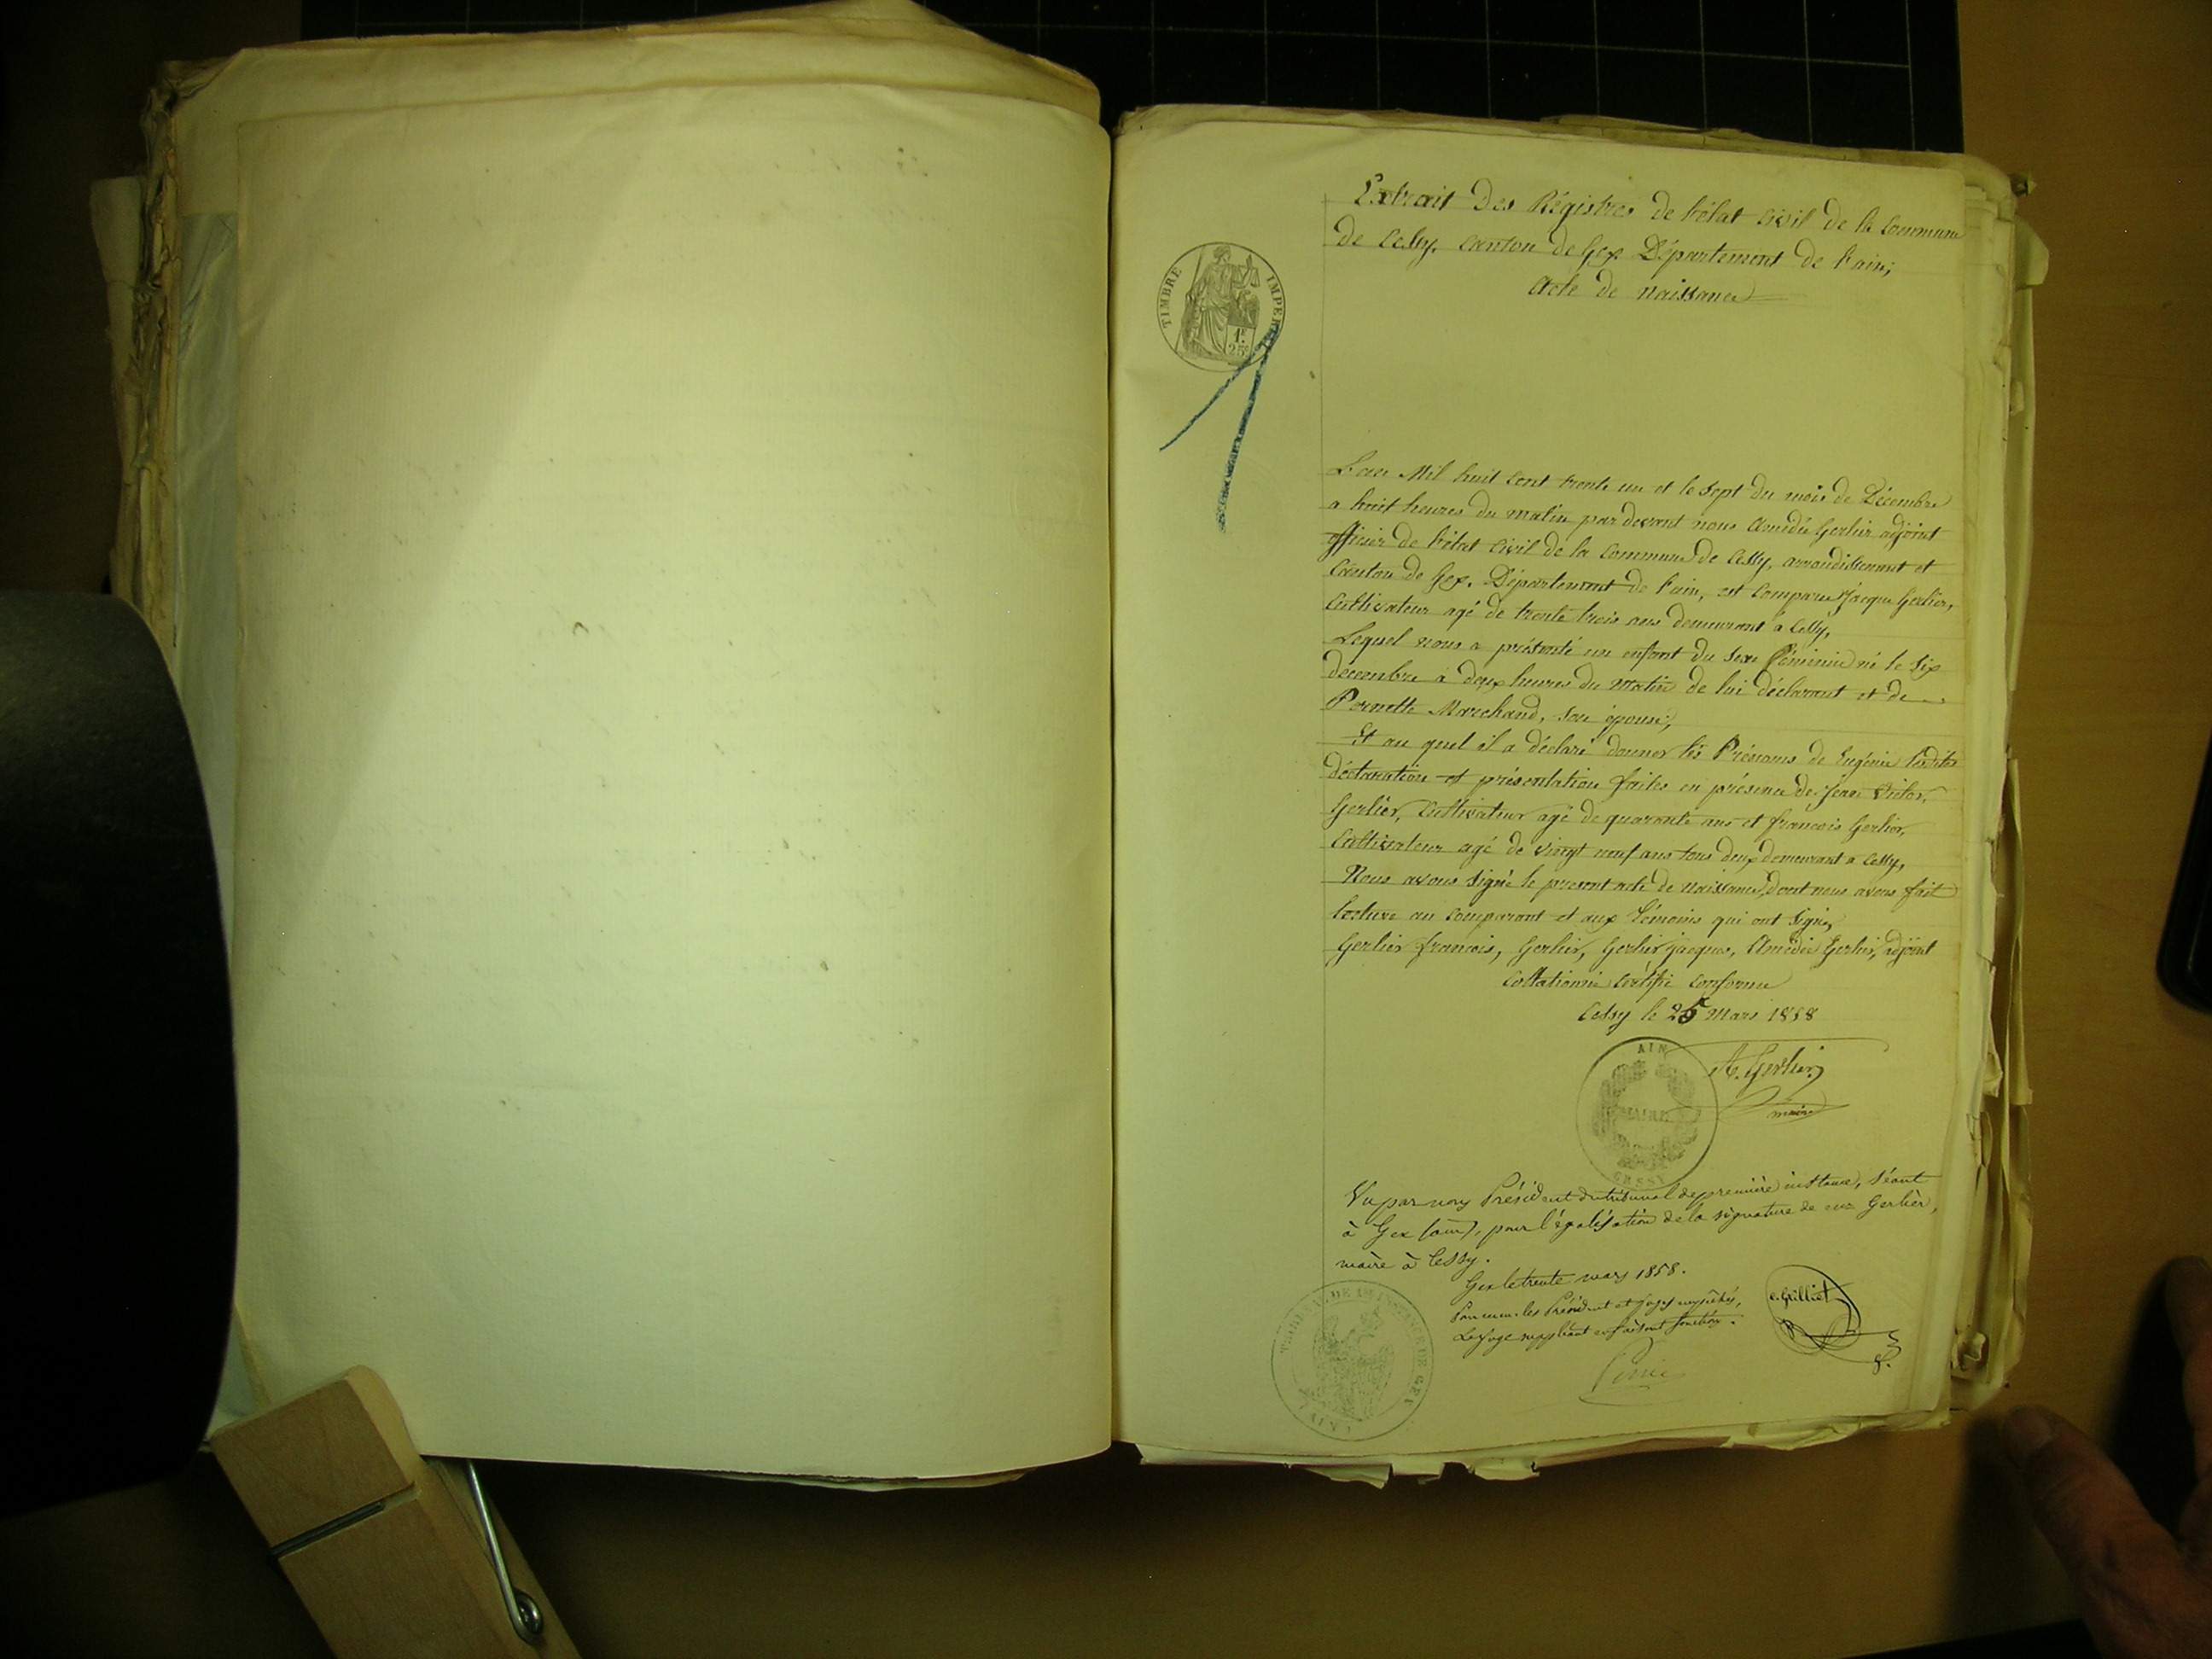 Extrait Des Régistres de l'état Civil de la Commune
de Cessy, canton de Gex Département de l'ain;
Acte de Naissance
TIMBRE IMPER
1F.
25c
L'an Mil huit cent trente un et le Sept du mois de Décembre
a huit heures du matin par devant nous Amédée Gerlier adjoint
officier de l'état Civil de la Commune de Cessy, arrondissement et
Canton de Gex, Département de l'ain, est comparu Jacque Gerlier,
Cultivateur agé de trente trois ans demeurant a Cessy,
Lequel nous a présenté un enfant du Sexe Féminin né le Six
décembre a deux heures du matin de lui déclarant et de
Pernette Marchand, son épouse,
Et au quel il a déclaré donner les Prénoms de Eugénie lesdites
déclaration et présentation faites en présence de Jean Victor
Gerlier, Cultivateur agé de quarante ans et francois Gerlier,
Cultivateur agé de vingt neuf ans tous deux demeurant a Cessy,
Nous avons signé le present acte de Naissance, dont nous avons fait
lecture au Comparant et aux témoins qui ont signé,
Gerlier francois, Gerlier, Gerlier jacques, Amédée Gerlier, adjoint
Collationné Certifié conforme
Cessy le 25 Mars 1858
AIN
A. Gerlier
MAIRIE
maire
CESSY
Vu par nous Président du tribunal de première instance, séant
à Gex (ain), pour légalisation de la signature de Gerlier,
maire à Cessy.
Gex le trente mars 1858.
Pour les Président et Juges empêchés,
Le Juge suppléant en faisant fonction.
e. Grilliet
TRIBUNAL DE 1RE INSTANCE DE GEX
(AIN)